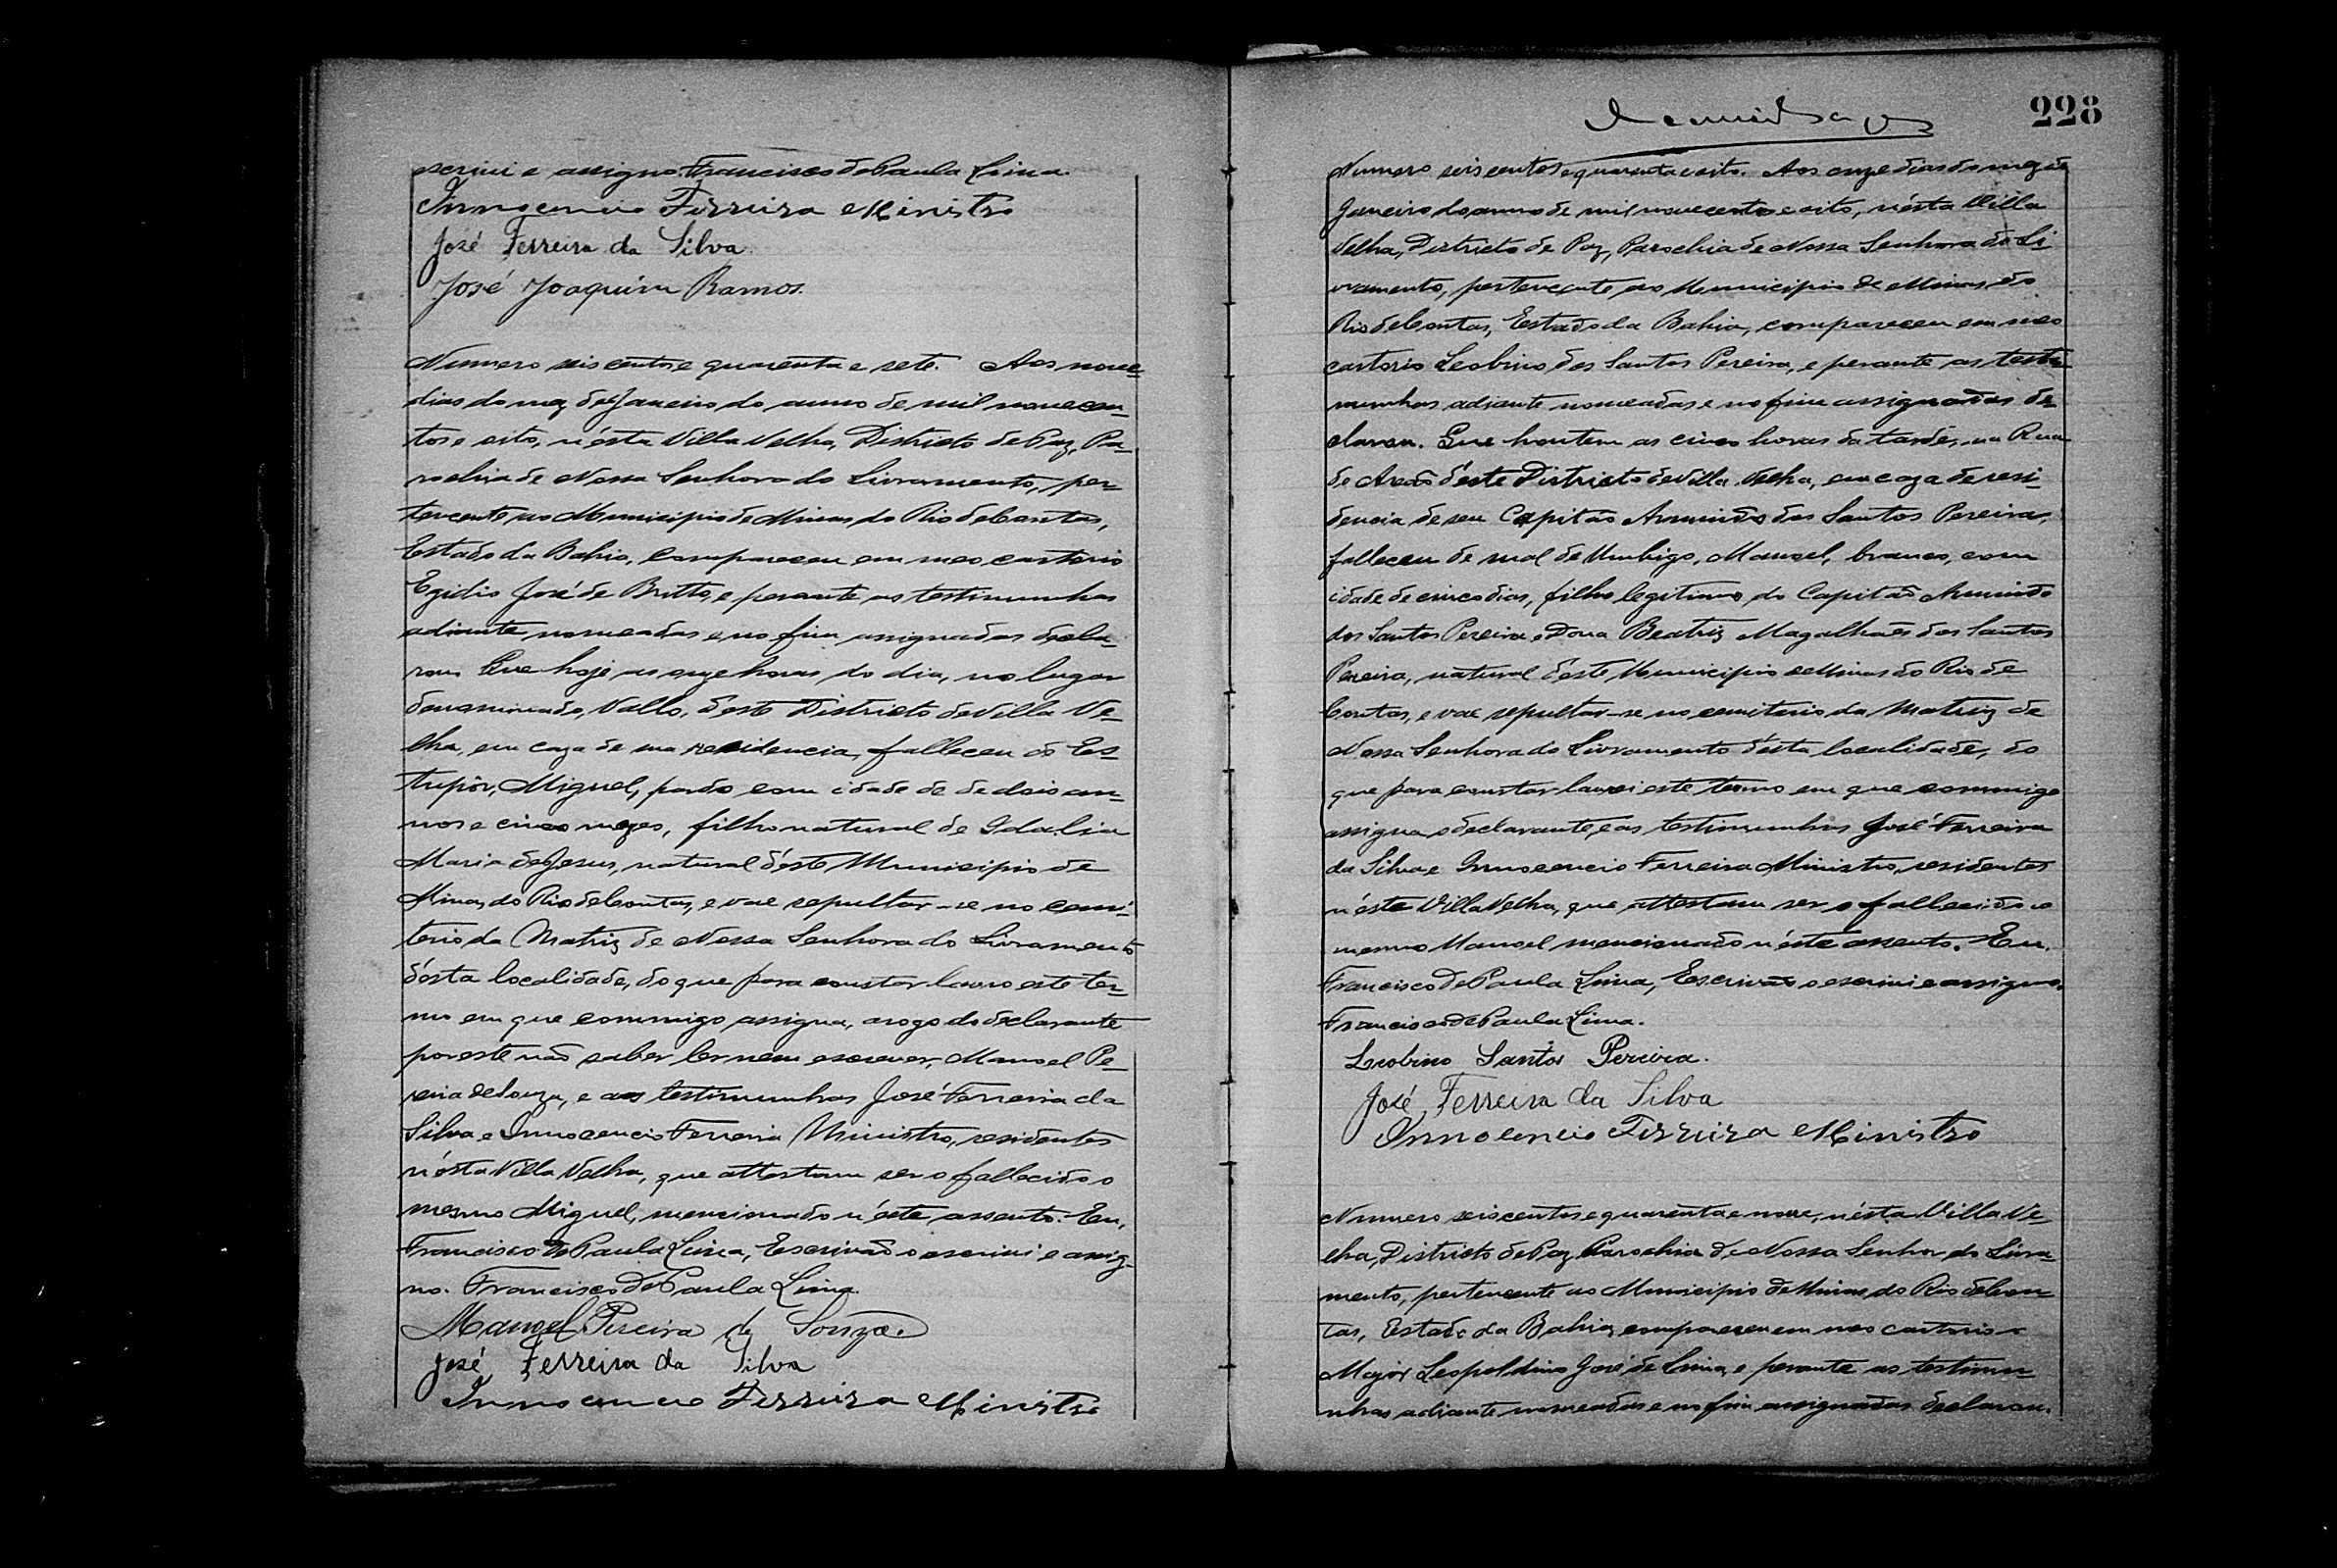 escrivi e assigno. Francisco de Paula Lima.
Innocencio Ferreira Ministro
José Ferreira da Silva
José Joaquim Ramos.
Numero seis centos e quarenta e sete. Aos nove
dias do mez de Janeiro do anno de mil novecen-
tos e oito, n'ésta Villa Velha, Districto de Paz, Pa-
rochia de Nossa Senhora do Livramento, per-
tencente ao Municipio de Minas do Rio de Contas,
Estado da Bahia, compareceu em meo cartorio
Egidio José de Britto, e perante as testimunhas
adiante nomeadas e no fim assignadas decla-
rou. Que hoje as onze horas do dia, no lugar
denominado, Vallo, d'éste Districto de Villa Ve-
lha, em caza de sua residencia, falleceu de Es-
tupôr, Miguel, pardo com idade de de dois an-
nos e cinco mezes, filho natural de Idalia
Maria de Jesus, natural d'éste Municipio de
Minas do Rio de Contas, e vae sepultar-se no cemi-
terio da Matriz de Nossa Senhora do Livramento
d'ésta localidade, do que para constar lavro este ter-
mo em que commigo assigna, a rogo do declarante
por este não saber ler nem escrever, Manoel Pe-
reira de Souza, e as testimunhas José Ferreira da
Silva e Innocencio Ferreira Ministro, residentes
n'ésta Villa Velha, que attestam ser o fallecido o
mesmo Miguel, mencionado n'éste assento. Eu,
Francisco de Paula Lima, Escrivão o escrivi e assig-
no. Francisco de Paula Lima.
Manoel Pereira de Souza.
José Ferreira da Silva
Innocencio Ferreira Ministro
228
Numero seis centos e quarenta e oito. Aos onze dias do mez de
Janeiro do anno de mil novecentos e oito, n'ésta Villa
Velha, Districto de Paz, Parochia de Nossa Senhora do Li-
vramento, pertencente ao Municipio de Minas do
Rio de Contas, Estado da Bahia, compareceu em meo
cartorio Leobino dos Santos Pereira, e perante as testi-
munhas adiante nomeadas e no fim assignadas de-
clarou. Que hontem as cinco horas da tarde, na Rua
de Areão d'éste Districto de Villa Velha, em caza de resi-
dencia de seu Capitão Armindo dos Santos Pereira,
falleceu de mal de Umbigo, Manoel, branco, com
idade de cinco dias, filho legitimo do Capitão Armindo
dos Santos Pereira e Dona Beatriz Magalhães dos Santos
Pereira, natural d'éste Municipio de Minas do Rio de
Contas, e vae sepultar-se no cemiterio da Matriz de
Nossa Senhora do Livramento d'ésta localidade, do
que para constar lavrei este termo em que commigo
assigna o declarante, e as testimunhas José Ferreira
da Silva e Innocencio Ferreira Ministro, residentes
n'ésta Villa Velha, que attestam ser o fallecido o
mesmo Manoel mencionado n'éste assento. Eu.
Francisco de Paula Lima, Escrivão o escrivi e assigno.
Francisco de Paula Lima.
Leobino Santos Pereira.
José Ferreira da Silva
Innocencio Ferreira Ministro
Numero seiscentos e quarenta e nove, n'ésta Villa Ve-
lha, Districto de Paz, Parochia de Nossa Senhor do Livra-
mento, pertencente ao Municipio de Minas do Rio de Con-
tas, Estado da Bahia, compareceu em meo cartorio o
Major Leopoldino José de Lima, e perante as testimu-
nhas adiante nomeadas e no fim assignadas declarou.